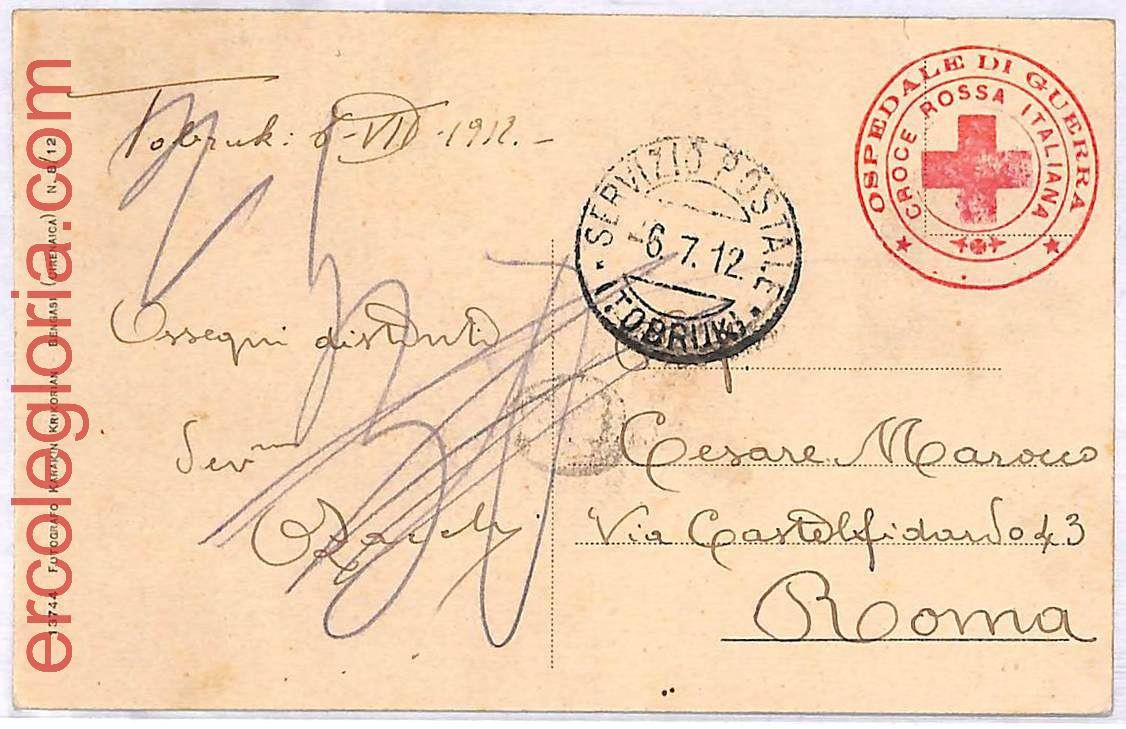 ercolegloria.com
13744 FOTOGRAFO KARAKIN KRIKORIAN BENGASI (CIRENAICA) N. 8/12
Tobruk: 6-VII-1912.-
OSPEDALE DI GUERRA
CROCE ROSSA ITALIANA
SERVIZIO POSTALE
-6.7.12.
(TOBRUK)
Ossequi distinti
Dev.mo
Cesare Marocco
Via Castelfidardo 43
Roma